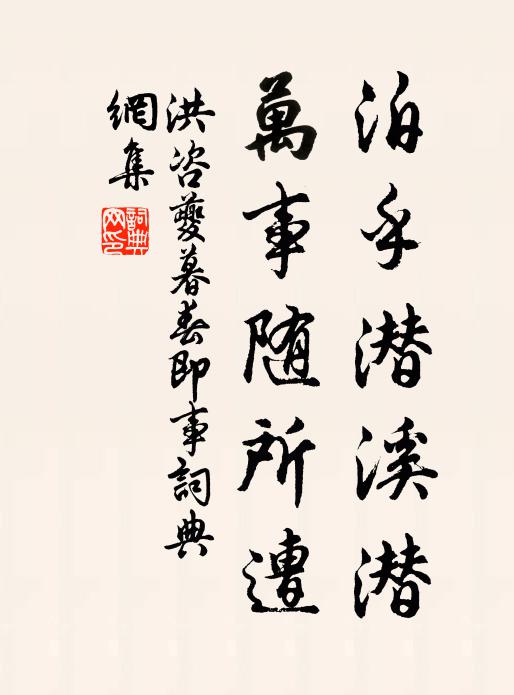 泊乎潜溪潜
萬事随所遭
洪咨夔暮春即事詞典
網集
詞典網印